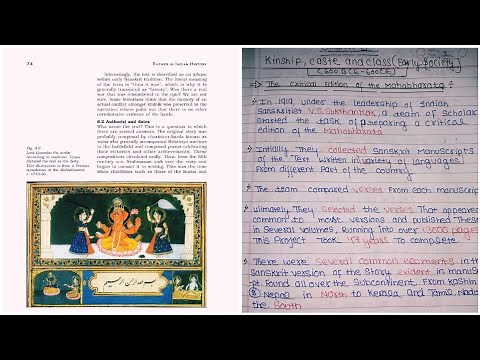 74
THEMES IN INDIAN HISTORY
Interestingly, the text is described as an itihasa
within early Sanskrit tradition. The literal meaning
of the term is "thus it was", which is why it is
generally translated as "history". Was there a real
war that was remembered in the epic? We are not
sure. Some historians think that the memory of an
actual conflict amongst kinfolk was preserved in the
narrative; others point out that there is no other
corroborative evidence of the battle.
8.2 Author(s) and dates
Who wrote the text? This is a question to which
there are several answers. The original story was
probably composed by charioteer-bards known as
sutas who generally accompanied Kshatriya warriors
to the battlefield and composed poems celebrating
their victories and other achievements. These
compositions circulated orally. Then, from the fifth
century BCE, Brahmanas took over the story and
began to commit it to writing. This was the time
when chiefdoms such as those of the Kurus and
Lord Ganesha the scribe
According to tradition, Vyasa
dictated the text to the deity.
This illustration is from a Persian
translation of the Mahabharata
Kinship, caste and class (Early Society)
(600 BCE-600CE)
The critical edition of the Mahabharata
In 1919, under the leadership of Indian
Sanskritist V.S Sukthankar, a team of scholar
started the task of preparing a critical
edition of the Mahabharata
Initially They collected Sanskrit manuscripts
of the Text written in variety of languages
From different Part of the country
The team compared verses from each manuscript
ulimately They selected the verses That appeared
common to most versions and published These
in Several volumes, Running into over 13000 pages
This Project Took 47 years to complete
There were Several common elements in the
Sanskrit version of the story evident in manuscri
pt found all over the Subcontinent From Kashmir
& Nepal in North to Kerala and Tamil Nadu
the South